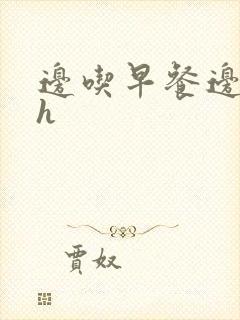 邊喫早餐邊
h
賈奴